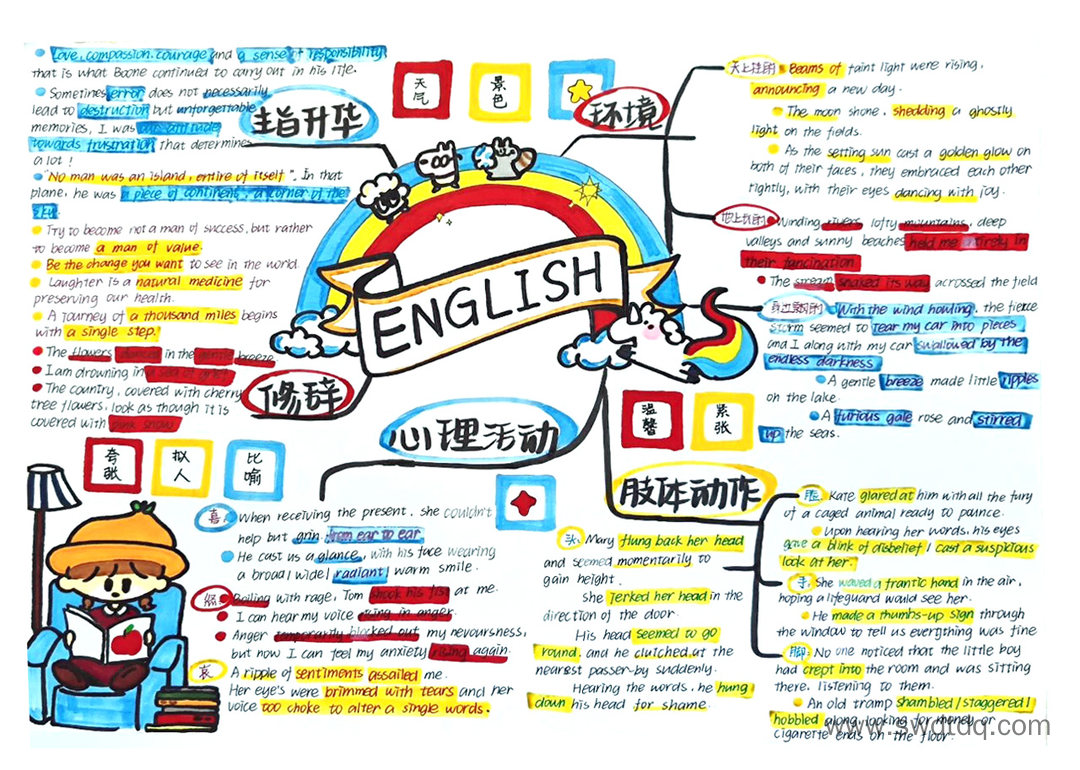 Love, compassion, courage and a sense of responsibility,
that is what Boone continued to carry out in his life.
Sometimes error does not necessarily
lead to destruction but unforgettable
memories, I was our attitude
towards frustration that determines
a lot!
"No man was an island, entire of itself". In that
plane, he was a piece of continent, a corner of the
Try to become not a man of success, but rather
to become a man of value.
Be the change you want to see in the world
Laughter is a natural medicine for
preserving our health.
A journey of a thousand miles begins
with a single step!
The flowers danced in the gentle breeze
I am drowning in a sea of grief
The country, covered with cherry
tree flowers, look as though it is
covered with pink snow
主旨升华
修辞
夸张
拟人
比喻
天气
景色
环境
ENGLISH
天上挂的
Beams of faint light were rising,
announcing a new day.
The moon shone, shedding a ghostly
light on the fields.
As the setting sun cast a golden glow on
both of their faces, they embraced each other
rightly, with their eyes dancing with joy.
地上我的
Winding rivers lofty mountains, deep
valleys and sunny beaches held me entirely in
their fancination
The stream snaked its way acrossed the field
With the wind howling, the fierce
storm seemed to tear my car into pieces
and I along with my car swallowed by the
endless darkness
A gentle breeze made little ripples
on the lake.
A furious gale rose and stirred
up the seas.
温馨
紧张
心理活动
喜:
When receiving the present, she couldn't
help but grin from ear to ear
He cast us a glance, with his face wearing
a broad/wide/radiant/warm smile.
Boiling with rage, Tom shook his fist at me.
I can hear my voice rising in anger.
Anger temporarily blocked out my nevoursness,
but now I can feel my anxiety rising again.
哀
A ripple of sentiments assailed me.
Her eye's were brimmed with tears and her
voice too choke to alter a single words.
肢体动作
头:
Mary flung back her head
and seemed momentarily to
gain height.
She jerked her head in the
direction of the door.
His head seemed to go
round, and he clutched at the
nearest passer-by suddenly.
Hearing the words, he hung
down his head for shame.
Kate glared at him with all the fury
of a caged animal ready to pounce.
Upon hearing her words, his eyes
gave a blink of disbelief / cast a suspicious
look at her.
手:
She waved a frantic hand in the air,
hoping a lifeguard would see her.
He made a thumbs-up sign through
the window to tell us everything was fine
脚:
No one noticed that the little boy
had crept into the room and was sitting
there, listening to them.
An old tramp shambled/staggered/
hobbled along looking for money or
cigarette ends on the floor.
www.swdtdq.com